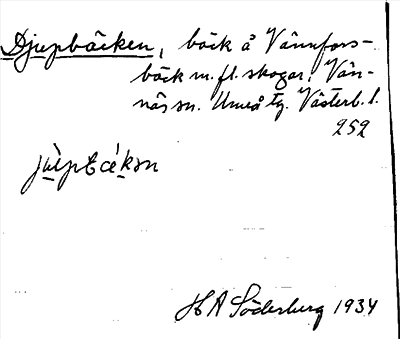 Djupbäcken, bäck å Vännfors-
bäck m. fl. skogar, Vän-
näs sn. Umeå tg. Västerb. l.
252
jùpbǽkən
H A Söderberg 1934